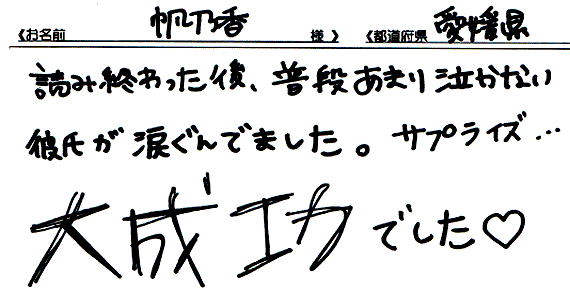 《お名前 帆乃香 様》 《都道府県 愛媛県
読み終わった後、普段あまり泣かない
彼氏が涙ぐんでました。サプライズ…
大成功でした♡